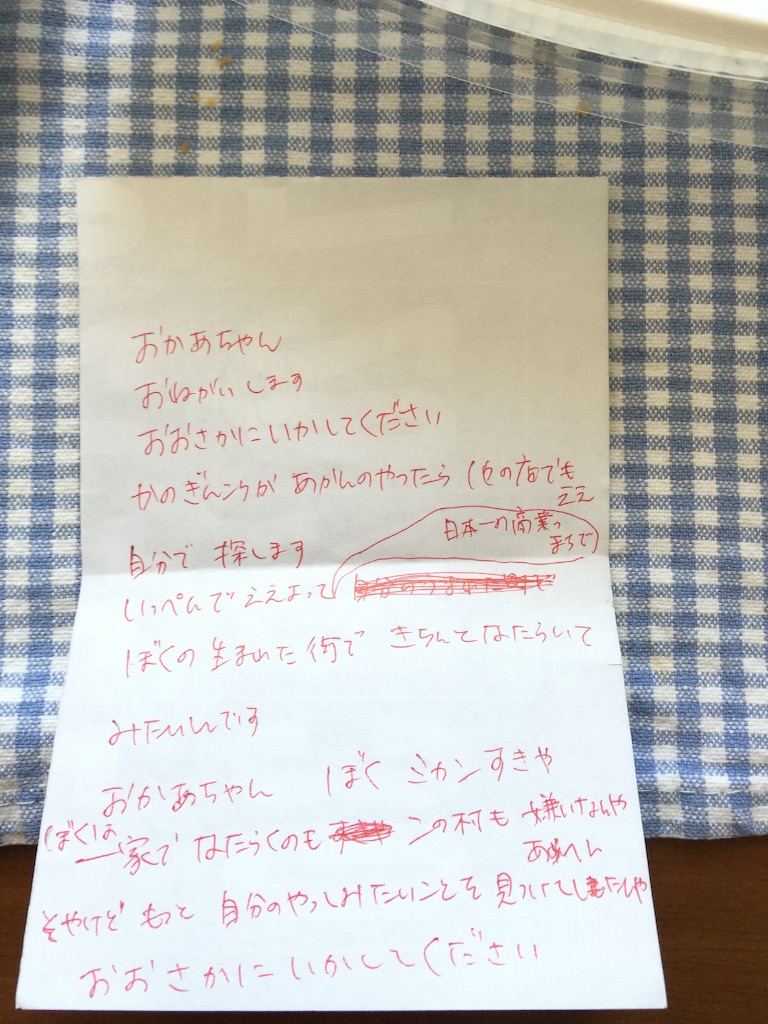 おかあちゃん
おねがいします
おおさかにいかしてください
かのぎんこうが あかんのやったら 他の店でも
ええ
自分で 探します
日本一の商業の
まちで
いっぺんでええよって
ぼくの 生まれた 街で きちんと はたらいて
みたいんです
おかあちゃん ぼく ミカンすきや
ぼくは
家で はたらくのも この村も 嫌いなんや
あらへん
そやけど もっと 自分のやってみたいことを 見つけてしまたんや
おおさかに いかしてください